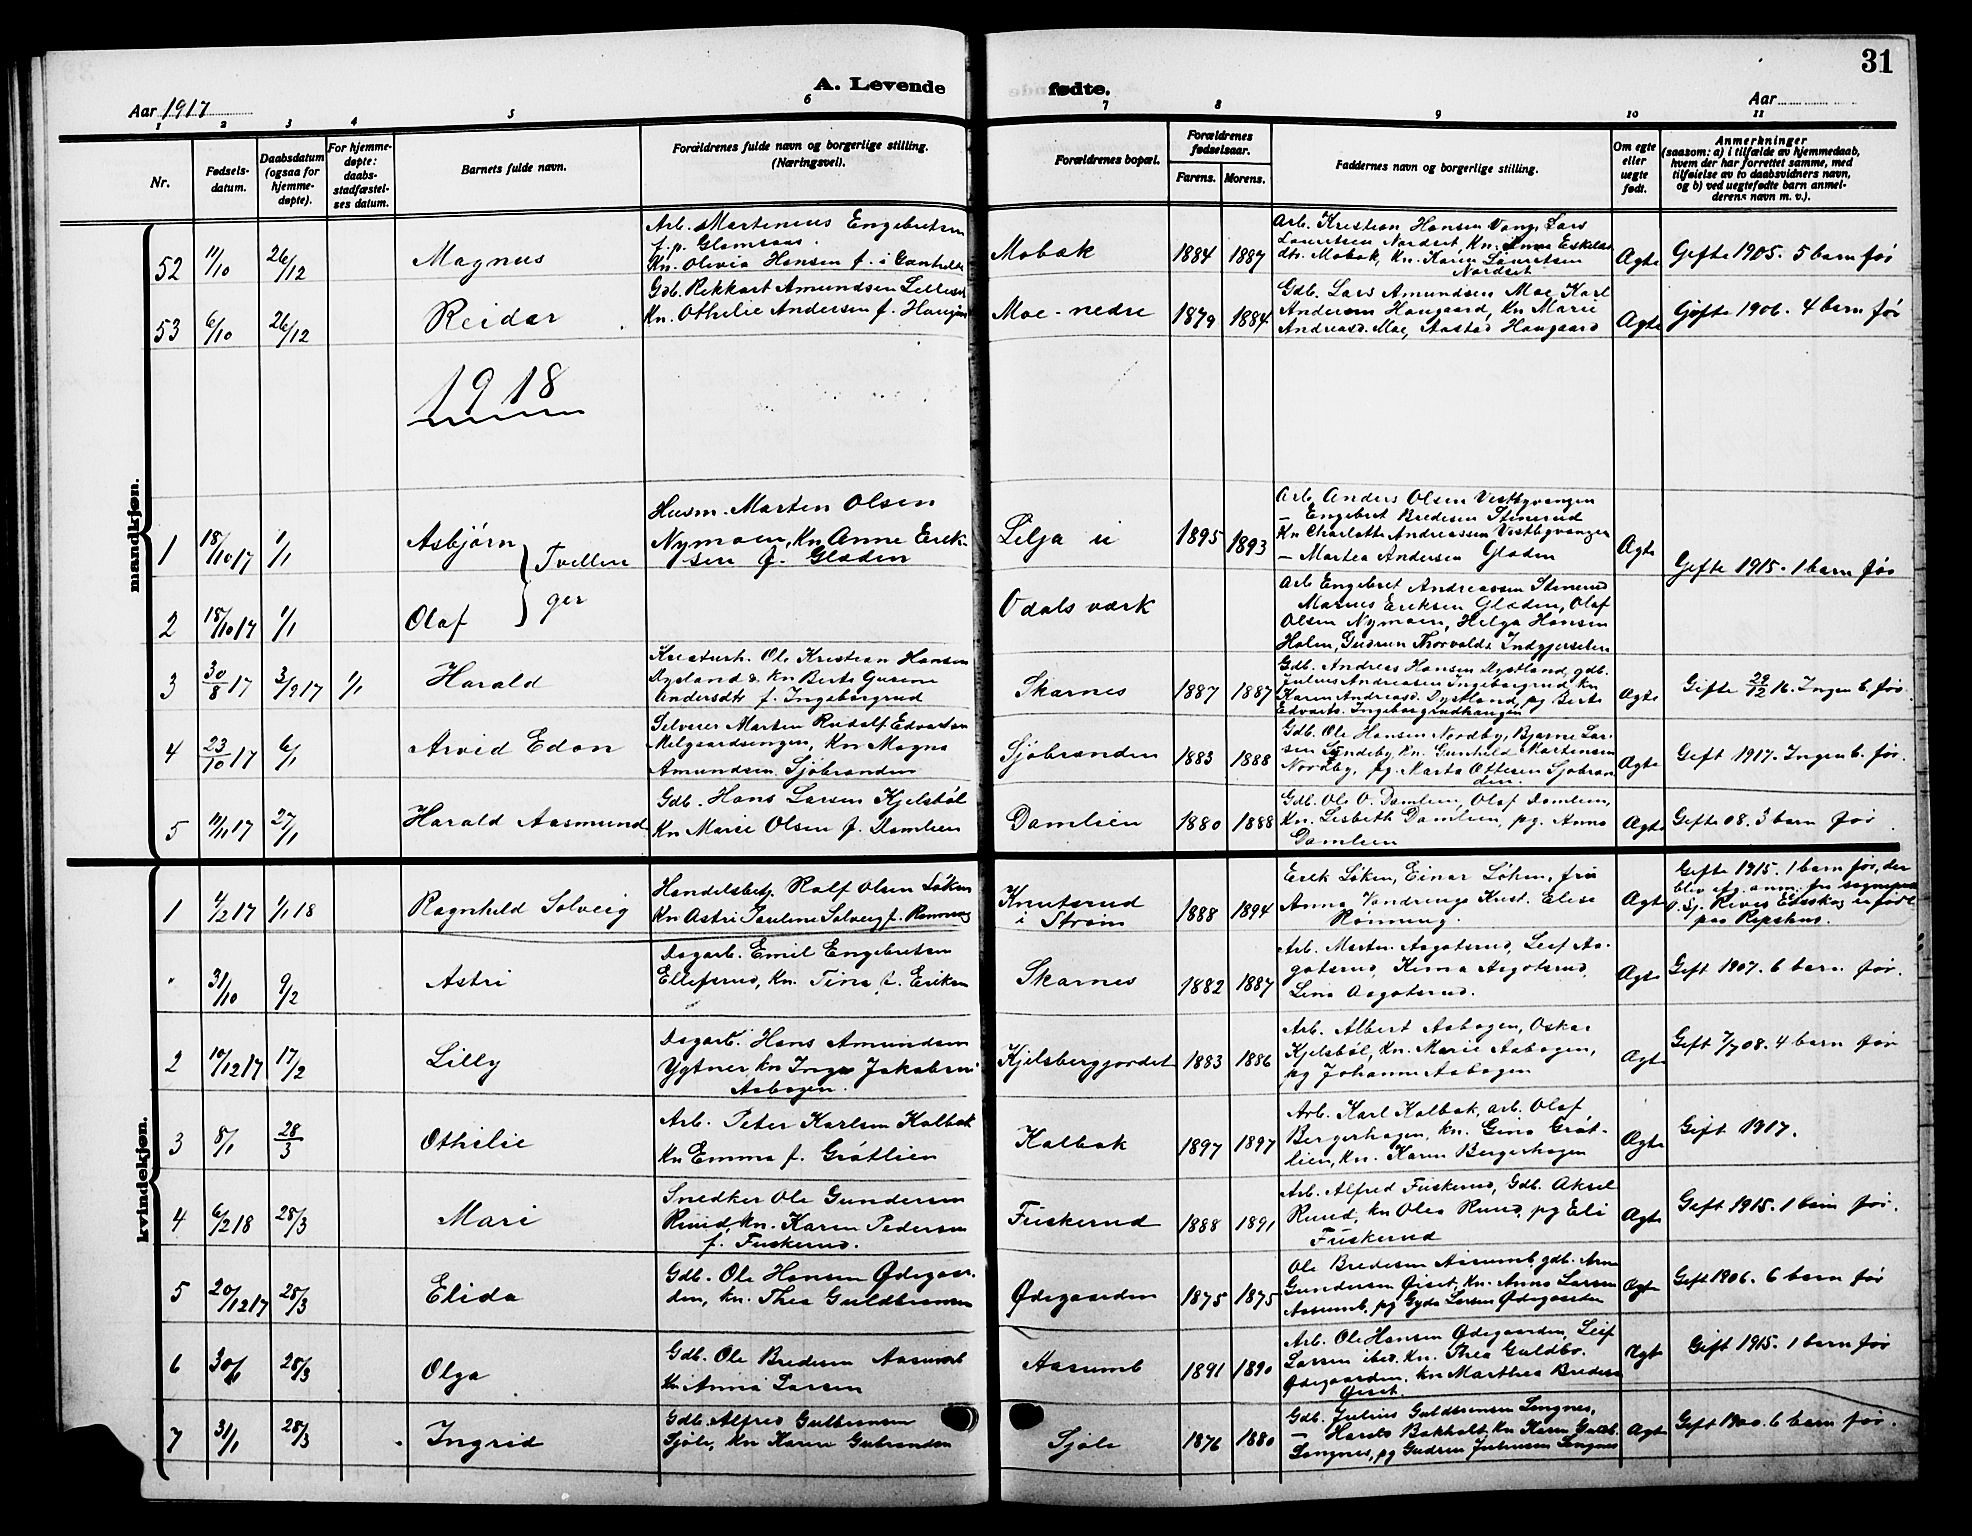 31
A. Levende fødte.
Aar 1917
Aar
1 2 3 4 5 6 7 8 9 10 11
Nr.
Fødsels-
datum.
Daabsdatum
(ogsaa for
hjemme-
døpte).
For hjemme-
døpte:
daabs-
stadfæstel-
ses datum.
Barnets fulde navn.
Forældrenes fulde navn og borgerlige stilling.
(Næringsvei).
Forældrenes bopæl.
Forældrenes
fødselsaar.
Farens. Morens.
Faddernes navn og borgerlige stilling.
Om egte
eller
uegte
født.
Anmerkninger
(saasom: a) i tilfælde av hjemmedaab,
hvem der har forrettet samme, med
tilføielse av to daabsvidners navn,
og b) ved uegtefødte barn anmel-
derens navn m. v.).
mandkjøn.
52 11/10 26/12 Magnus
Arb. Martenius Engebretsen
f. p. Glomsaas.
Kn. Olivia Hansen f. i
Mobak 1884 1887
Arb. Kristian Hansen Vang, Lars
Lauritsen Nordset, Kn.
dtr. Mobak, Kn. Karen Lauritsen
Nordset
Ægte Gifte 1905. 5 barn før
53 6/10 26/12 Reidar
Gdb. Rikkart Amundsen
Kn. Othilie Andersen f.
Moe-nedre 1879 1884
Gdb. Lars Amundsen Moe, Karl
Andersen Haugaard, Kn Marie
Andreasd. Moe, Aastad Haugaard
Ægte Gifte 1906. 4 barn før
1918
1 18/10 17 1/1 Asbjørn } Tvillin
Husm. Marten Olsen
Nymoen, Kn Anne Erik-
sen f. Gladen
Lilja u 1895 1893
Arb. Anders Olsen Vestbyvangen
– Engebret Bredesen Stenerud
Kn Charlotte Andreassen Vestbyvangen
– Martea Andersen Gladen
Ægte Gifte 1915. 1 barn før
2 18/10 17 1/1 Olaf ger
Odals værk
Arb Engebret Andreassen Stenerud
Marius Eriksen Gladen, Olaf
Olsen Nymoen, Helga Hansen
Holen, Gudrun Thorvalds.
3 30/8 17 3/9 17 1/1 Harald
Ole Kristian Hansen
Dysland & Kn Berte
Andersdtr f. Ingeborgrud
Skarnes 1887 1887
Gdb. Andreas Hansen Dystland, gdb.
Julius Andreasen Ingeborgrud, Kn
Karen Andreasd. Dystland, pg. Berte
Edvarts. Ingeborgrudhaugen
Ægte Gifte 29/12 16. Ingen b. før.
4 23/10 17 6/1 Arvid Edon
Selveier Marten Rudolf Edvardsen
Melgaardsengen, Kn Magna
Amundsen Sjøbranden
Sjøbranden 1883 1888
Gdb. Ole Hansen Nordby, Bjarne Lar-
sen Sundeby, kn. Gunhild Martensen
Nordby, pg. Marta Ottesen Sjøbran
den.
Ægte Gifte 1917. Ingen b. før.
5 11/11 17 27/1 Harald Aasmund
Gdb. Hans Larsen Kjelsbøl
Kn Marie Olsen f. Damlien
Damlien 1880 1888
Gdb. Ole O. Damlien, Olaf Damlien,
Kn. Lisbeth Damlien, pg. Anna
Damlien
Ægte Gifte 08. 3 barn før
kvindekjøn.
1 4/12 17 1/1 18 Ragnhild Solveig
Handelsbetj. Rolf Olsen Løken
Kn Astri Pauline Solveig f. Rønning
Knutsrud
i Strøm 1888 1894
Erik Løken, Einar Løken, fru
Anna Vandrengs Kust. Elise
Rønning.
Ægte Gifte 1915. 1 barn før, der
" 31/10 9/2 Astri
Dagarb. Emil Engebretsen
Ellefsrud, kn. Tina f. Eriksen
Skarnes 1882 1887
Arb. Martin Aagotsrud, Leif Aa-
gotsrud, Kima Aagotsrud,
Lina Aagotsrud.
Ægte Gift 1907. 6 barn før.
2 10/12 17 17/2 Lilly
Dagarb. Hans Amundsen
Ygtner, kn Inga Jakobsen
Aabogen.
Kjelsbergjordet 1883 1886
Arb. Albert Aabogen, Oskar
Kjelsbøl, Kn. Marie Aabogen,
pg Johanne Aabogen
Ægte Gift 7/7 08. 4 barn før
3 8/1 28/3 Othilie
Arb. Peter Karlsen Kalbak
Kn Emma f. Grøtlien
Kalbak 1897 1897
Arb. Karl Kalbak, arb. Olaf
Bergerhagen, kn. Gina Grøt-
lien, kn. Karen Bergerhagen
Ægte Gift 1917.
4 6/2 18 28/3 Mari
Snedker Ole Gundersen
Ruud, kn. Karen Pedersen
f. Fuskerud.
Fuskerud 1888 1891
Arb. Alfred Fuskerud, Gdb. Aksel
Ruud, kn Olea Ruud, pg Eli
Fuskerud
Ægte Gift 1915. 1 barn før.
5 20/12 17 28/3 Elida
Gdb. Ole Hansen Ødegaar-
den, kn. Thea Guldbransen
Ødegaarden 1875 1875
Ole Bredesen Aasumb, gdb. Arne
Gundersen Øiset, kn. Anna Larsen
Aasumb, pg Gyda Larsen Ødegaarden
Ægte Gift 1906. 6 barn før
6 30/1 28/3 Olga
Gdb. Ole Bredesen Aasumb
kn. Anna Larsen
Aasumb 1891 1890
Arb. Ole Hansen Ødegaarden, Leif
Larsen ibid. kn. Thea Guldbr.
Ødegaarden, kn Marthea Bredesen
Øiset.
Ægte Gift 1915. 1 barn før
7 31/1 28/3 Ingrid
Gdb. Alfred Gulbransen
Sjøli, kn Karen Gulbransen
Sjøli 1876 1880
Gdb. Julius Guldbransen Songnes,
– Harald Bakholt, kn Karen Guldb.
Songnes, pg Gudrun Juliussen Songnes
Ægte Gift 1900. 6 barn før.